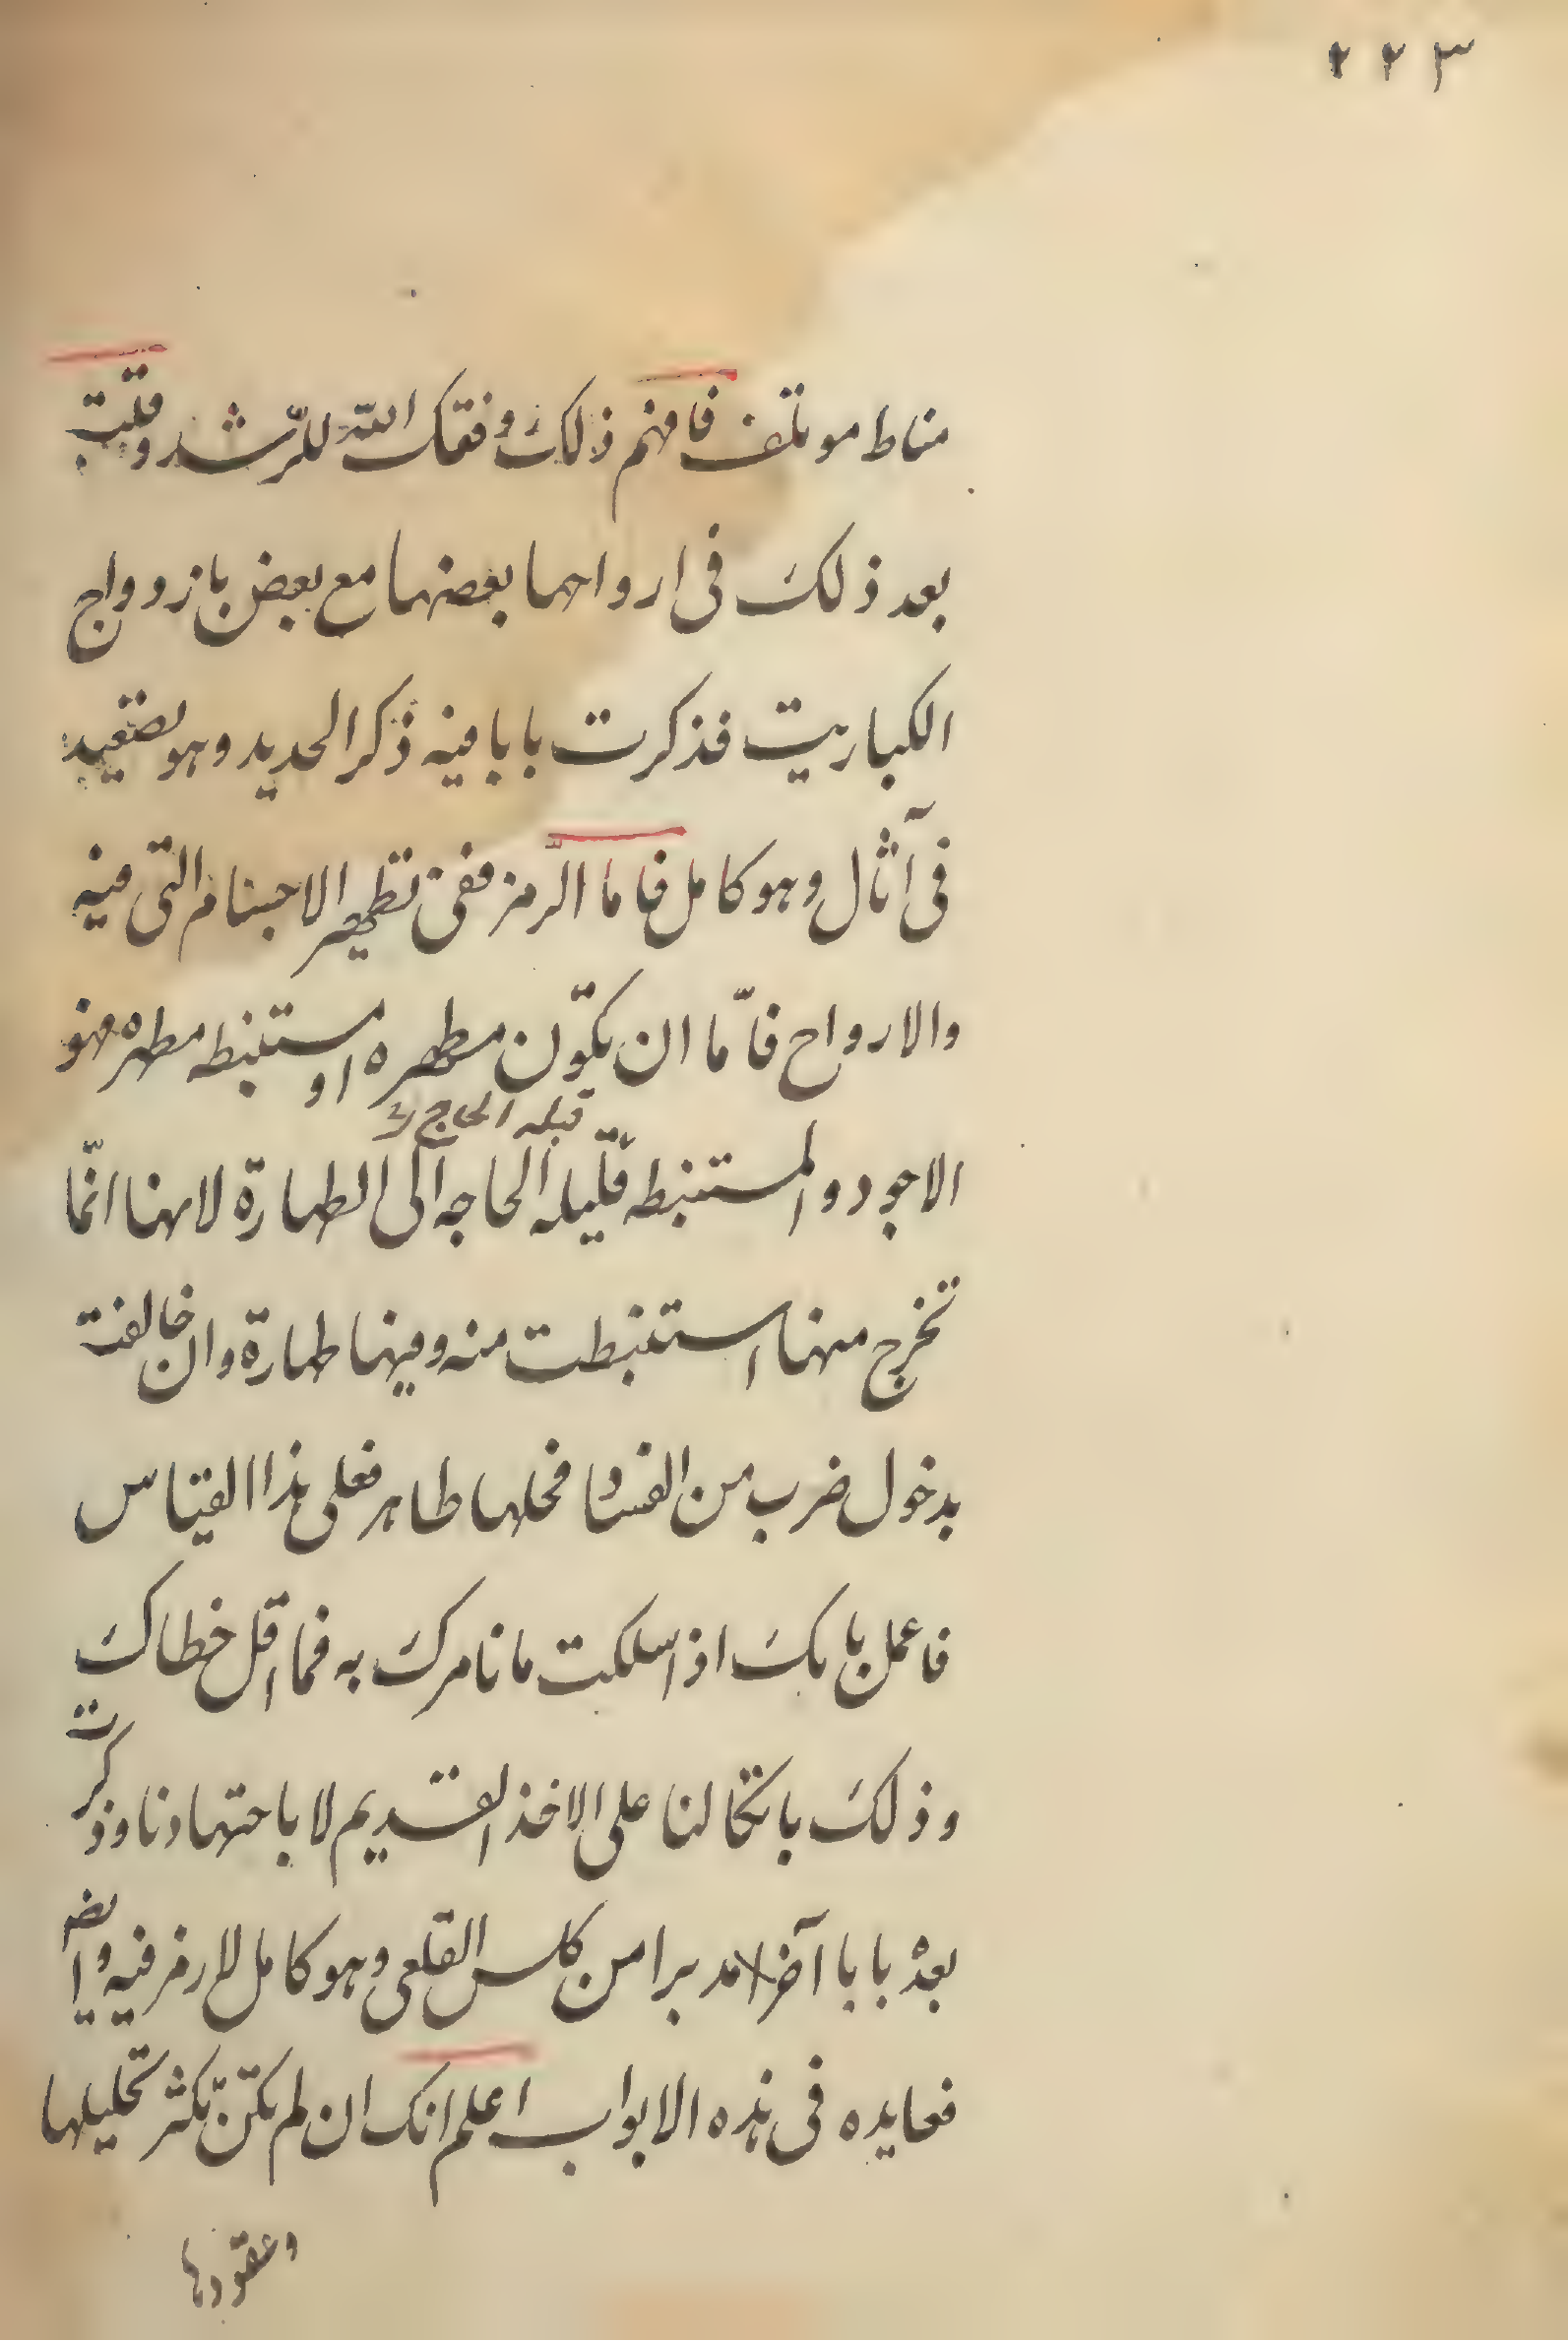 ٢٢٣
مناط موتلف فافهم ذلك وفقك الله للرشد وقلت
بعد ذلك فى ارواحها بعضها مع بعض بازدواج
الكباريت فذكرت بابا فيه ذكر الحديد وهو تصعيد
فى آثال وهو كامل فاما الرمز ففى تطهير الاجسام التى فيه
والارواح فامّا ان يكون مطهره او مستنبطه مطهره فهو
قبله الحاج
الاجود والمستنبطه قليله الحاجه الى الطهارة لانها انّما
تخرج منها استنبطت منه وفيها طهارة وان خالفت
بدخول ضرب من الفساد فحلها طاهر فعلى هذا القياس
فاعمل بابك اذا سلكت ما نامرك به فما اقل خطاك
وذلك باتكالنا على الاخذ القديم لا باجتهادنا وذكرت
بعدُ بابا آخر مدبرا من كلس القلعى وهو كامل لا رمز فيه وايضا
فعايده فى هذه الابواب اعلم انك ان لم تكن تكثر تحليلها
وعقودها